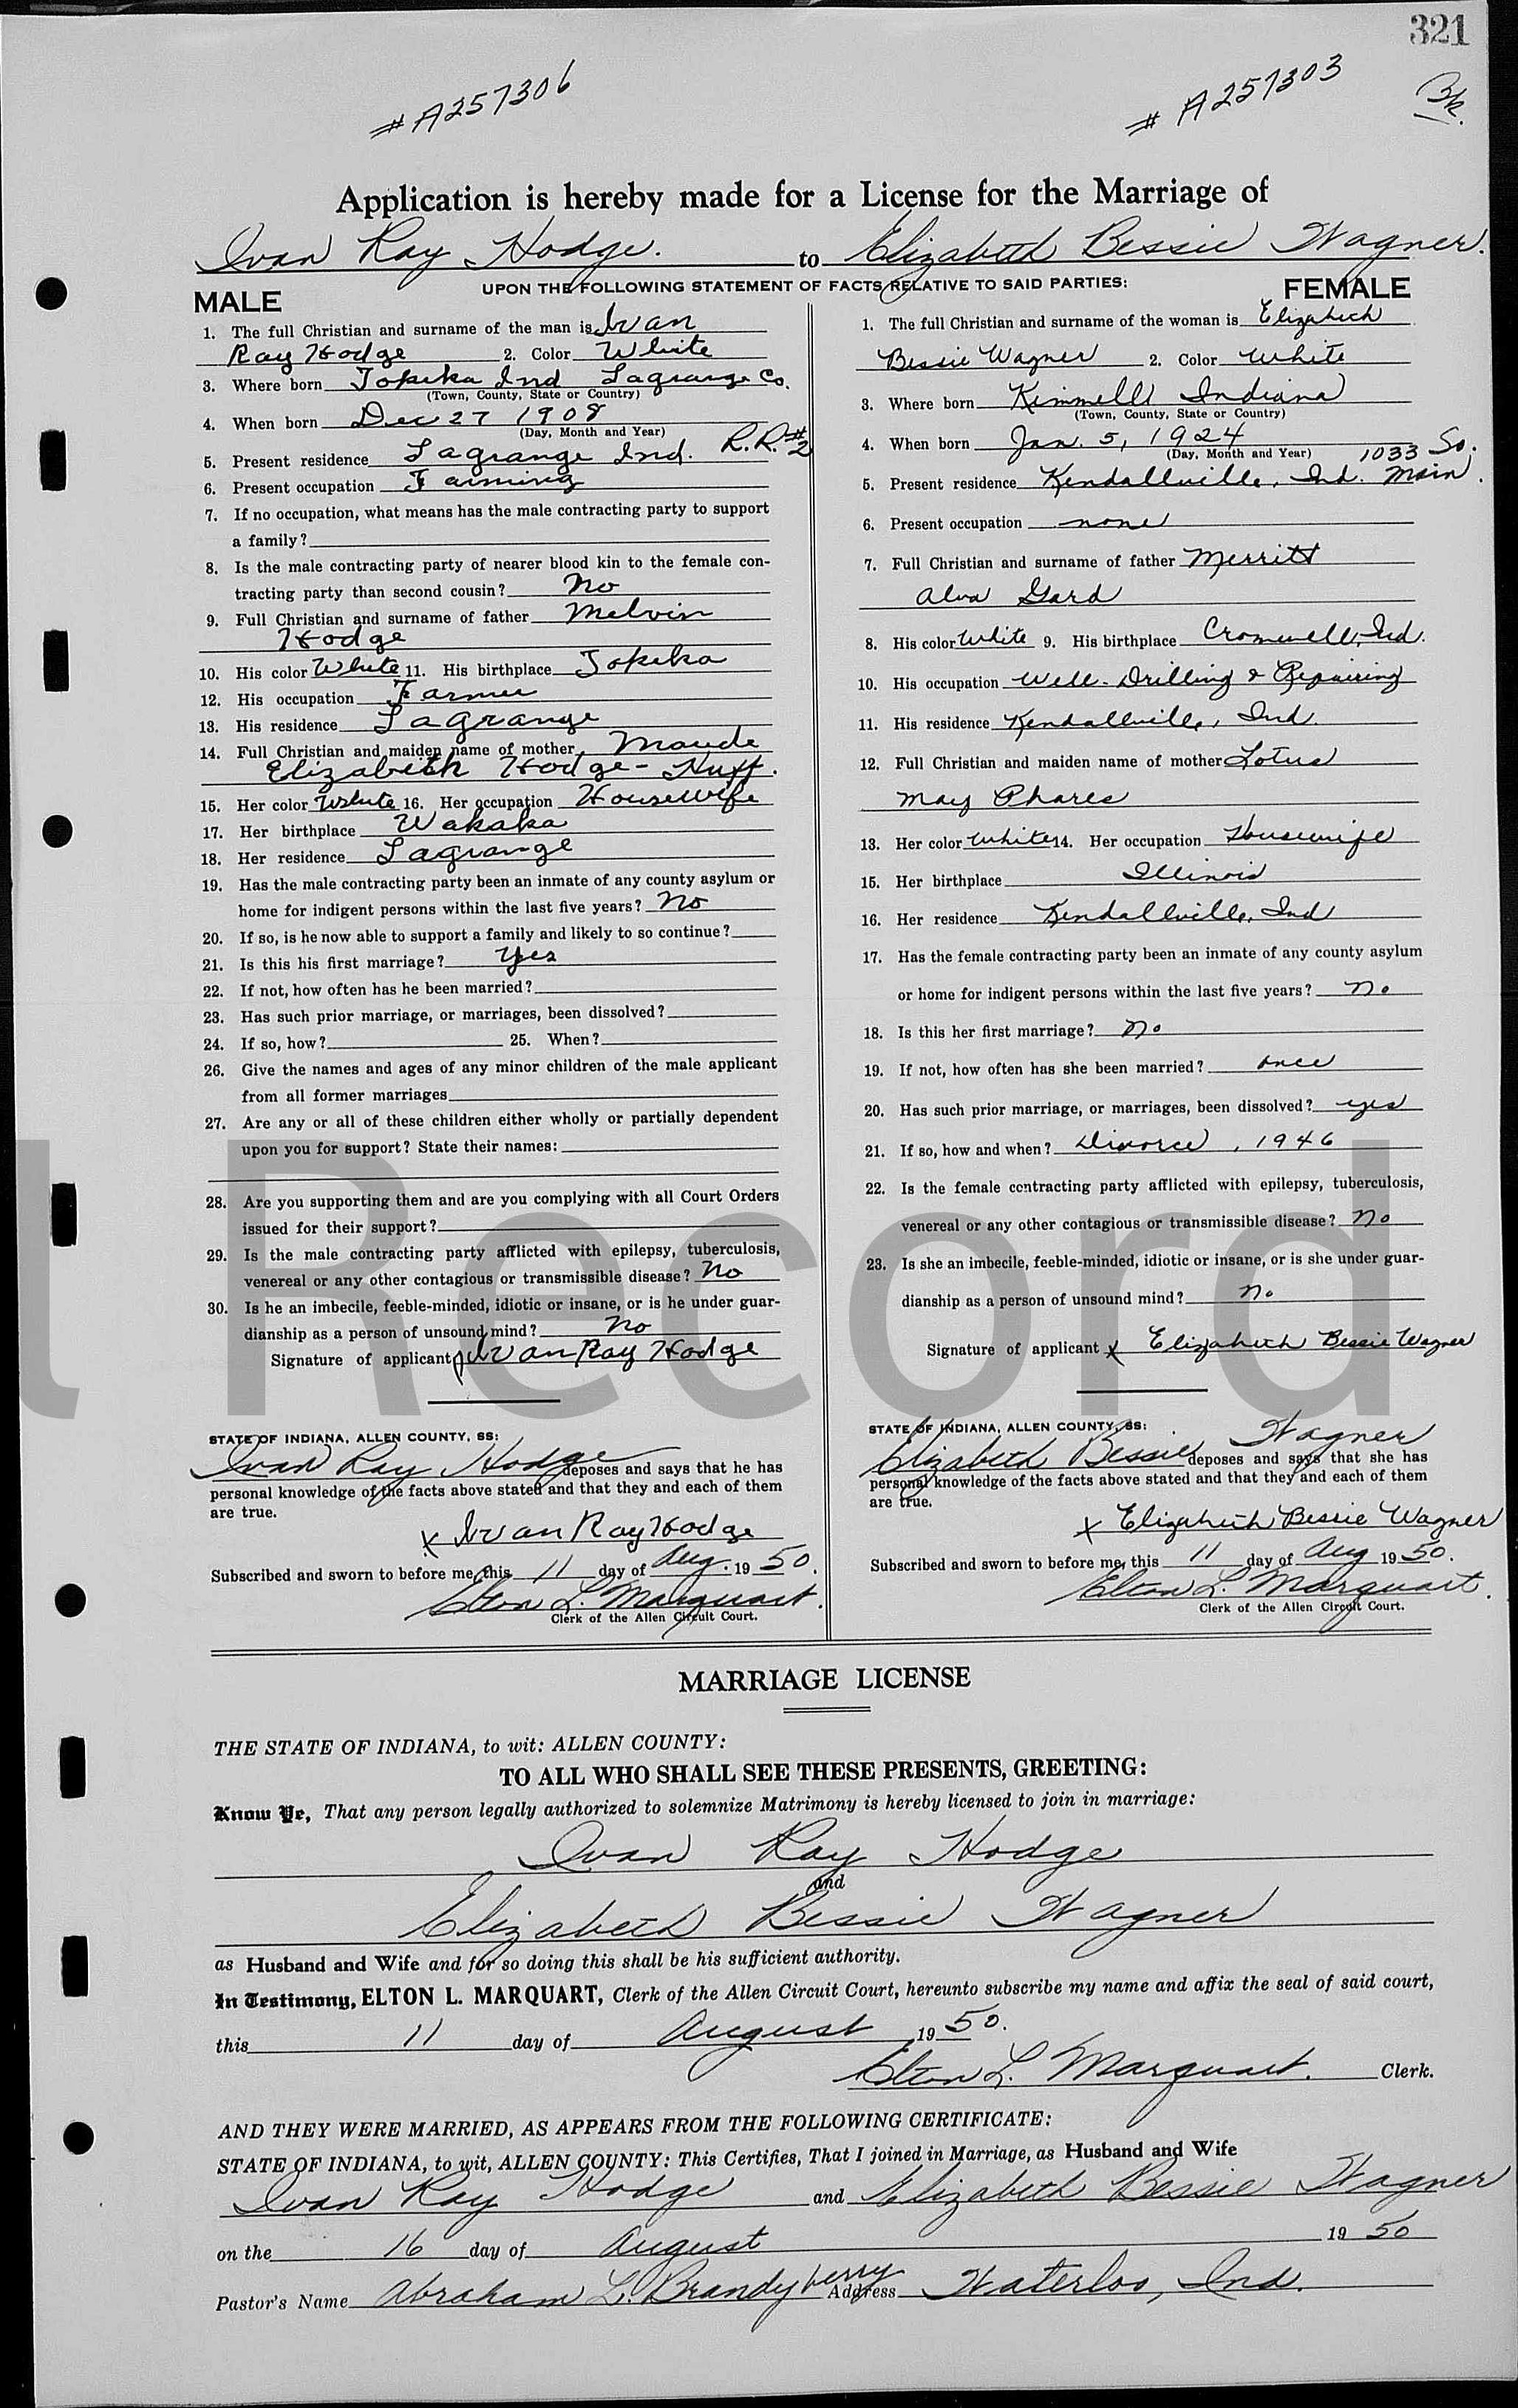 321
# A257306
# A257303
Bk.
Application is hereby made for a License for the Marriage of
Ivan Ray Hodge. to Elizabeth Bessie Wagner.
UPON THE FOLLOWING STATEMENT OF FACTS RELATIVE TO SAID PARTIES:
MALE
1. The full Christian and surname of the man is Ivan
Ray Hodge 2. Color White
3. Where born Topeka Ind Lagrange Co.
(Town, County, State or Country)
4. When born Dec 27 1908
(Day, Month and Year)
5. Present residence Lagrange Ind. R.R.#2
6. Present occupation Farming
7. If no occupation, what means has the male contracting party to support
a family?
8. Is the male contracting party of nearer blood kin to the female con-
tracting party than second cousin? No
9. Full Christian and surname of father Melvin
Hodge
10. His color White 11. His birthplace Topeka
12. His occupation Farmer
13. His residence Lagrange
14. Full Christian and maiden name of mother Maude
Elizabeth Hodge - Huff.
15. Her color White 16. Her occupation Housewife
17. Her birthplace Wakaka
18. Her residence Lagrange
19. Has the male contracting party been an inmate of any county asylum or
home for indigent persons within the last five years? No
20. If so, is he now able to support a family and likely to so continue?
21. Is this his first marriage? Yes
22. If not, how often has he been married?
23. Has such prior marriage, or marriages, been dissolved?
24. If so, how? 25. When?
26. Give the names and ages of any minor children of the male applicant
from all former marriages
27. Are any or all of these children either wholly or partially dependent
upon you for support? State their names:
28. Are you supporting them and are you complying with all Court Orders
issued for their support?
29. Is the male contracting party afflicted with epilepsy, tuberculosis,
venereal or any other contagious or transmissible disease? No
30. Is he an imbecile, feeble-minded, idiotic or insane, or is he under guar-
dianship as a person of unsound mind? No
Signature of applicant Ivan Ray Hodge
STATE OF INDIANA, ALLEN COUNTY, SS:
Ivan Ray Hodge deposes and says that he has
personal knowledge of the facts above stated and that they and each of them
are true.
x Ivan Ray Hodge
Subscribed and sworn to before me, this 11 day of Aug. 19 50.
Elton L. Marquart.
Clerk of the Allen Circuit Court.
FEMALE
1. The full Christian and surname of the woman is Elizabeth
Bessie Wagner 2. Color White
3. Where born Kimmell Indiana
(Town, County, State or Country)
4. When born Jan. 5, 1924
(Day, Month and Year) 1033 So.
5. Present residence Kendallville, Ind. Main.
6. Present occupation none
7. Full Christian and surname of father Merritt
Alva Gard
8. His color White 9. His birthplace Cromwell, Ind.
10. His occupation Well-Drilling & Repairing
11. His residence Kendallville, Ind.
12. Full Christian and maiden name of mother Lotus
May Phares
13. Her color White 14. Her occupation Housewife
15. Her birthplace Illinois
16. Her residence Kendallville, Ind
17. Has the female contracting party been an inmate of any county asylum
or home for indigent persons within the last five years? No
18. Is this her first marriage? No
19. If not, how often has she been married? once
20. Has such prior marriage, or marriages, been dissolved? yes
21. If so, how and when? Divorce, 1946
22. Is the female contracting party afflicted with epilepsy, tuberculosis,
venereal or any other contagious or transmissible disease? No
23. Is she an imbecile, feeble-minded, idiotic or insane, or is she under guar-
dianship as a person of unsound mind? No
Signature of applicant x Elizabeth Bessie Wagner
STATE OF INDIANA, ALLEN COUNTY, SS:
Elizabeth Bessie Wagner deposes and says that she has
personal knowledge of the facts above stated and that they and each of them
are true.
x Elizabeth Bessie Wagner
Subscribed and sworn to before me, this 11 day of Aug 19 50.
Elton L. Marquart.
Clerk of the Allen Circuit Court.
l Record
MARRIAGE LICENSE
THE STATE OF INDIANA, to wit: ALLEN COUNTY:
TO ALL WHO SHALL SEE THESE PRESENTS, GREETING:
Know Ye, That any person legally authorized to solemnize Matrimony is hereby licensed to join in marriage:
Ivan Ray Hodge
and
Elizabeth Bessie Wagner
as Husband and Wife and for so doing this shall be his sufficient authority.
In Testimony, ELTON L. MARQUART, Clerk of the Allen Circuit Court, hereunto subscribe my name and affix the seal of said court,
this 11 day of August 19 50.
Elton L. Marquart. Clerk.
AND THEY WERE MARRIED, AS APPEARS FROM THE FOLLOWING CERTIFICATE:
STATE OF INDIANA, to wit, ALLEN COUNTY: This Certifies, That I joined in Marriage, as Husband and Wife
Ivan Ray Hodge and Elizabeth Bessie Wagner
on the 16 day of August 19 50
Pastor's Name Abraham L. Brandyberry Address Waterloo, Ind.